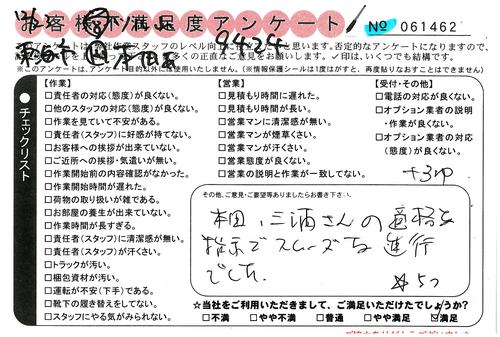 お客様不満足度アンケート
No 061462
9424
※このアンケートは、アンケート目的以外に使用いたしません。(※情報保護シールは1度はがすと、再度貼りなおすことはできません)
チェックリスト
【作業】
□責任者の対応(態度)が良くない。
□他のスタッフの対応(態度)が良くない。
□作業を見ていて不安がある。
□責任者(スタッフ)に好感が持てない。
□お客様への挨拶が出来ていない。
□ご近所への挨拶・気遣いが無い。
□作業開始前の内容確認がなかった。
□作業開始時間が遅れた。
□荷物の取り扱いが雑である。
□お部屋の養生が出来ていない。
□作業時間が長すぎる。
□責任者(スタッフ)に清潔感が無い。
□責任者(スタッフ)が汗くさい。
□トラックが汚い。
□梱包資材が汚い。
□運転が不安(下手)である。
□靴下の履き替えをしてない。
□スタッフにやる気がみられない。
【営業】
□見積もり時間に遅れた。
□見積もり時間が長い。
□営業マンに清潔感が無い。
□営業マンが煙草くさい。
□営業マンが汗くさい。
□営業態度が良くない。
□営業の説明と作業が一致してない。
【受付・その他】
□電話の対応が良くない。
□オプション業者の説明
・作業が良くない。
□オプション業者の対応
(態度)が良くない。
その他、ご意見・ご要望等ありましたらお書き下さい。
本田、三浦さんの適格な
指示でスムーズな進行
でした。
☆5つ
☆当社をご利用いただきまして、ご満足いただけたでしょうか?
□不満 □やや不満 □普通 □やや満足 ☑満足